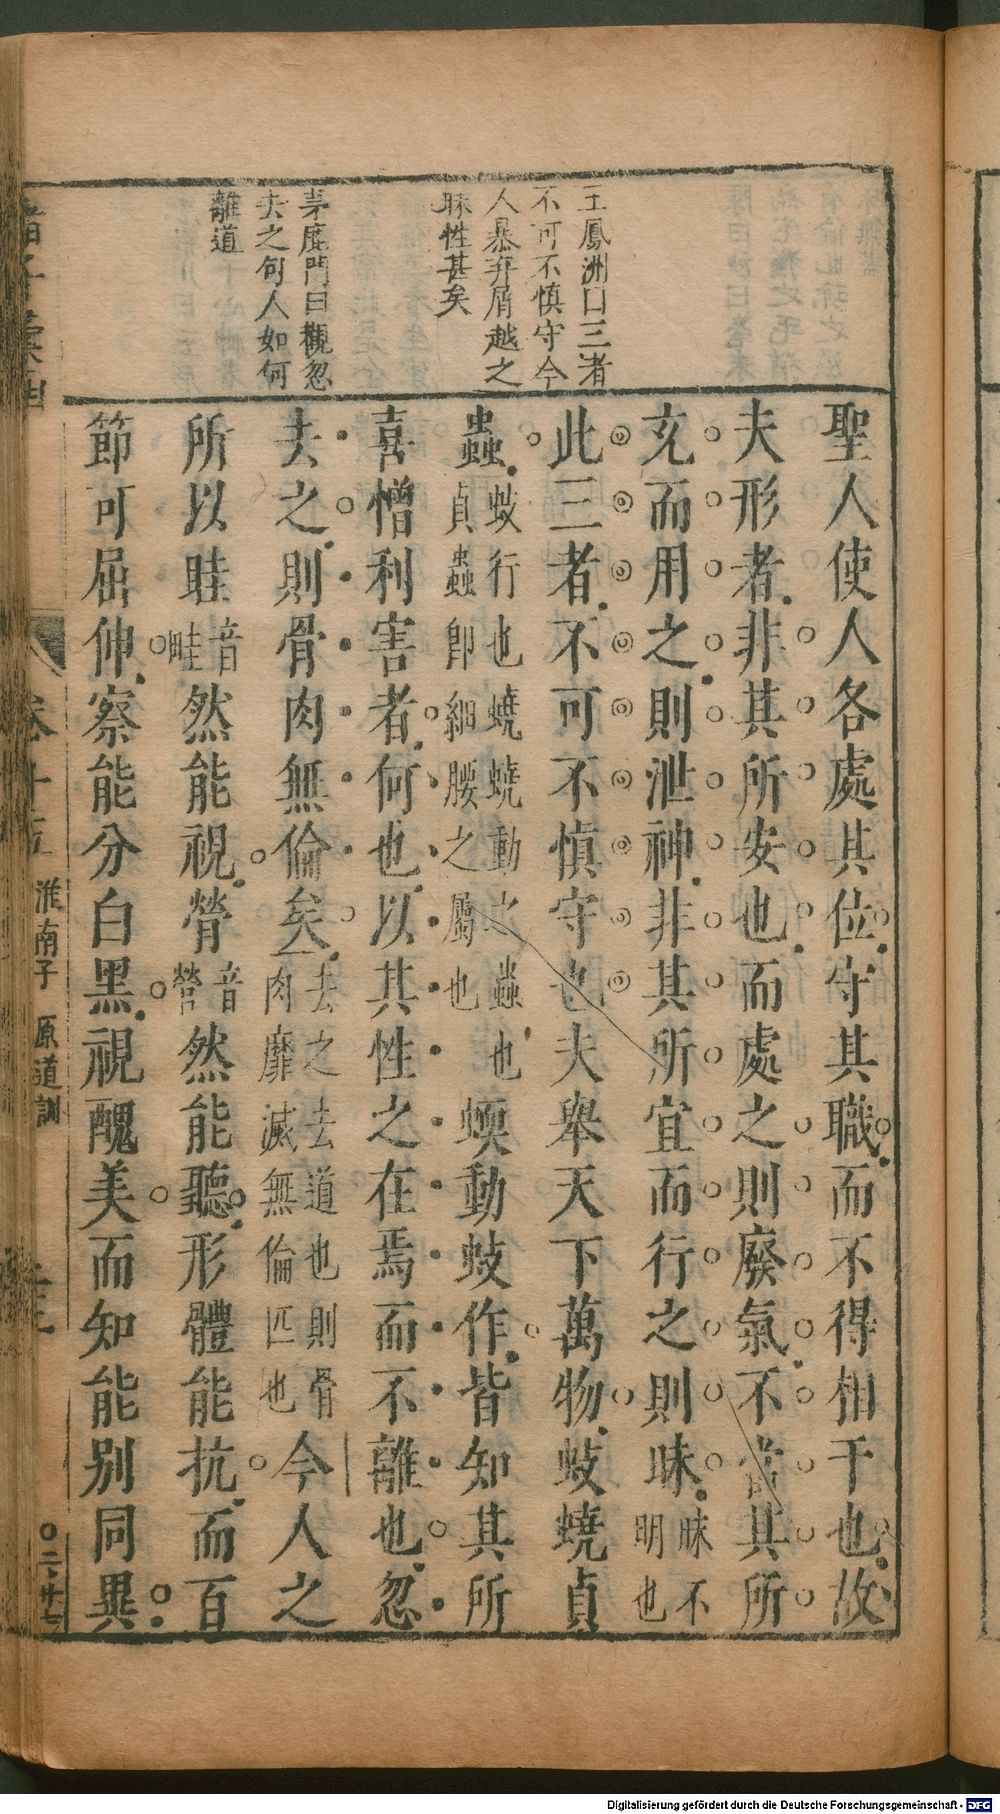 王鳳洲曰三者
不可不慎守今
人暴弃屑越之
昧性甚矣
茅鹿門曰觀忽
去之句人如何
離道
聖人使人各處其位守其職而不得相干也故
夫形者非其所安也而處之則廢氣不當其所
充而用之則泄神非其所宜而行之則昧昧不明也
此三者不可不慎守也夫舉天下萬物蚑蟯貞
蟲蚑行也蟯蟯動之蟲也貞蟲卽細腰之屬也蝡動蚑作皆知其所
喜憎利害者何也以其性之在焉而不離也忽
去之則骨肉無倫矣去之去道也則骨肉靡滅無倫匹也今人之
所以眭音畦然能視䯨音營然能聽形體能抗而百
節可屈伸察能分白黑視醜美而知能别同異
卷十五 淮南子 原道訓
Digitalisierung gefördert durch die Deutsche Forschungsgemeinschaft - DFG